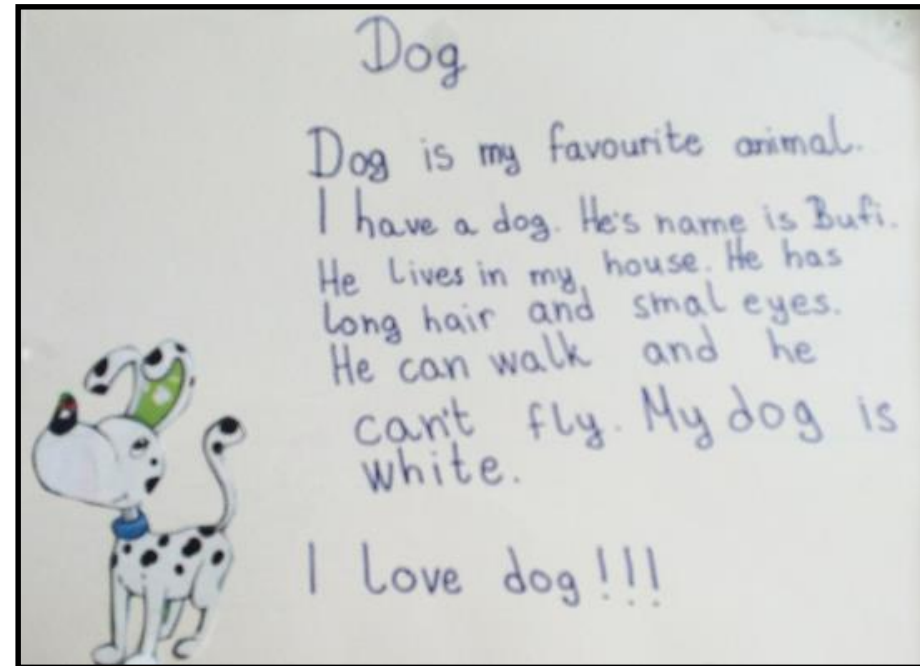 Dog
Dog is my favourite animal.
I have a dog. He's name is Bufi.
He lives in my house. He has
long hair and smal eyes.
He can walk and he
can't fly. My dog is
white.
I love dog!!!